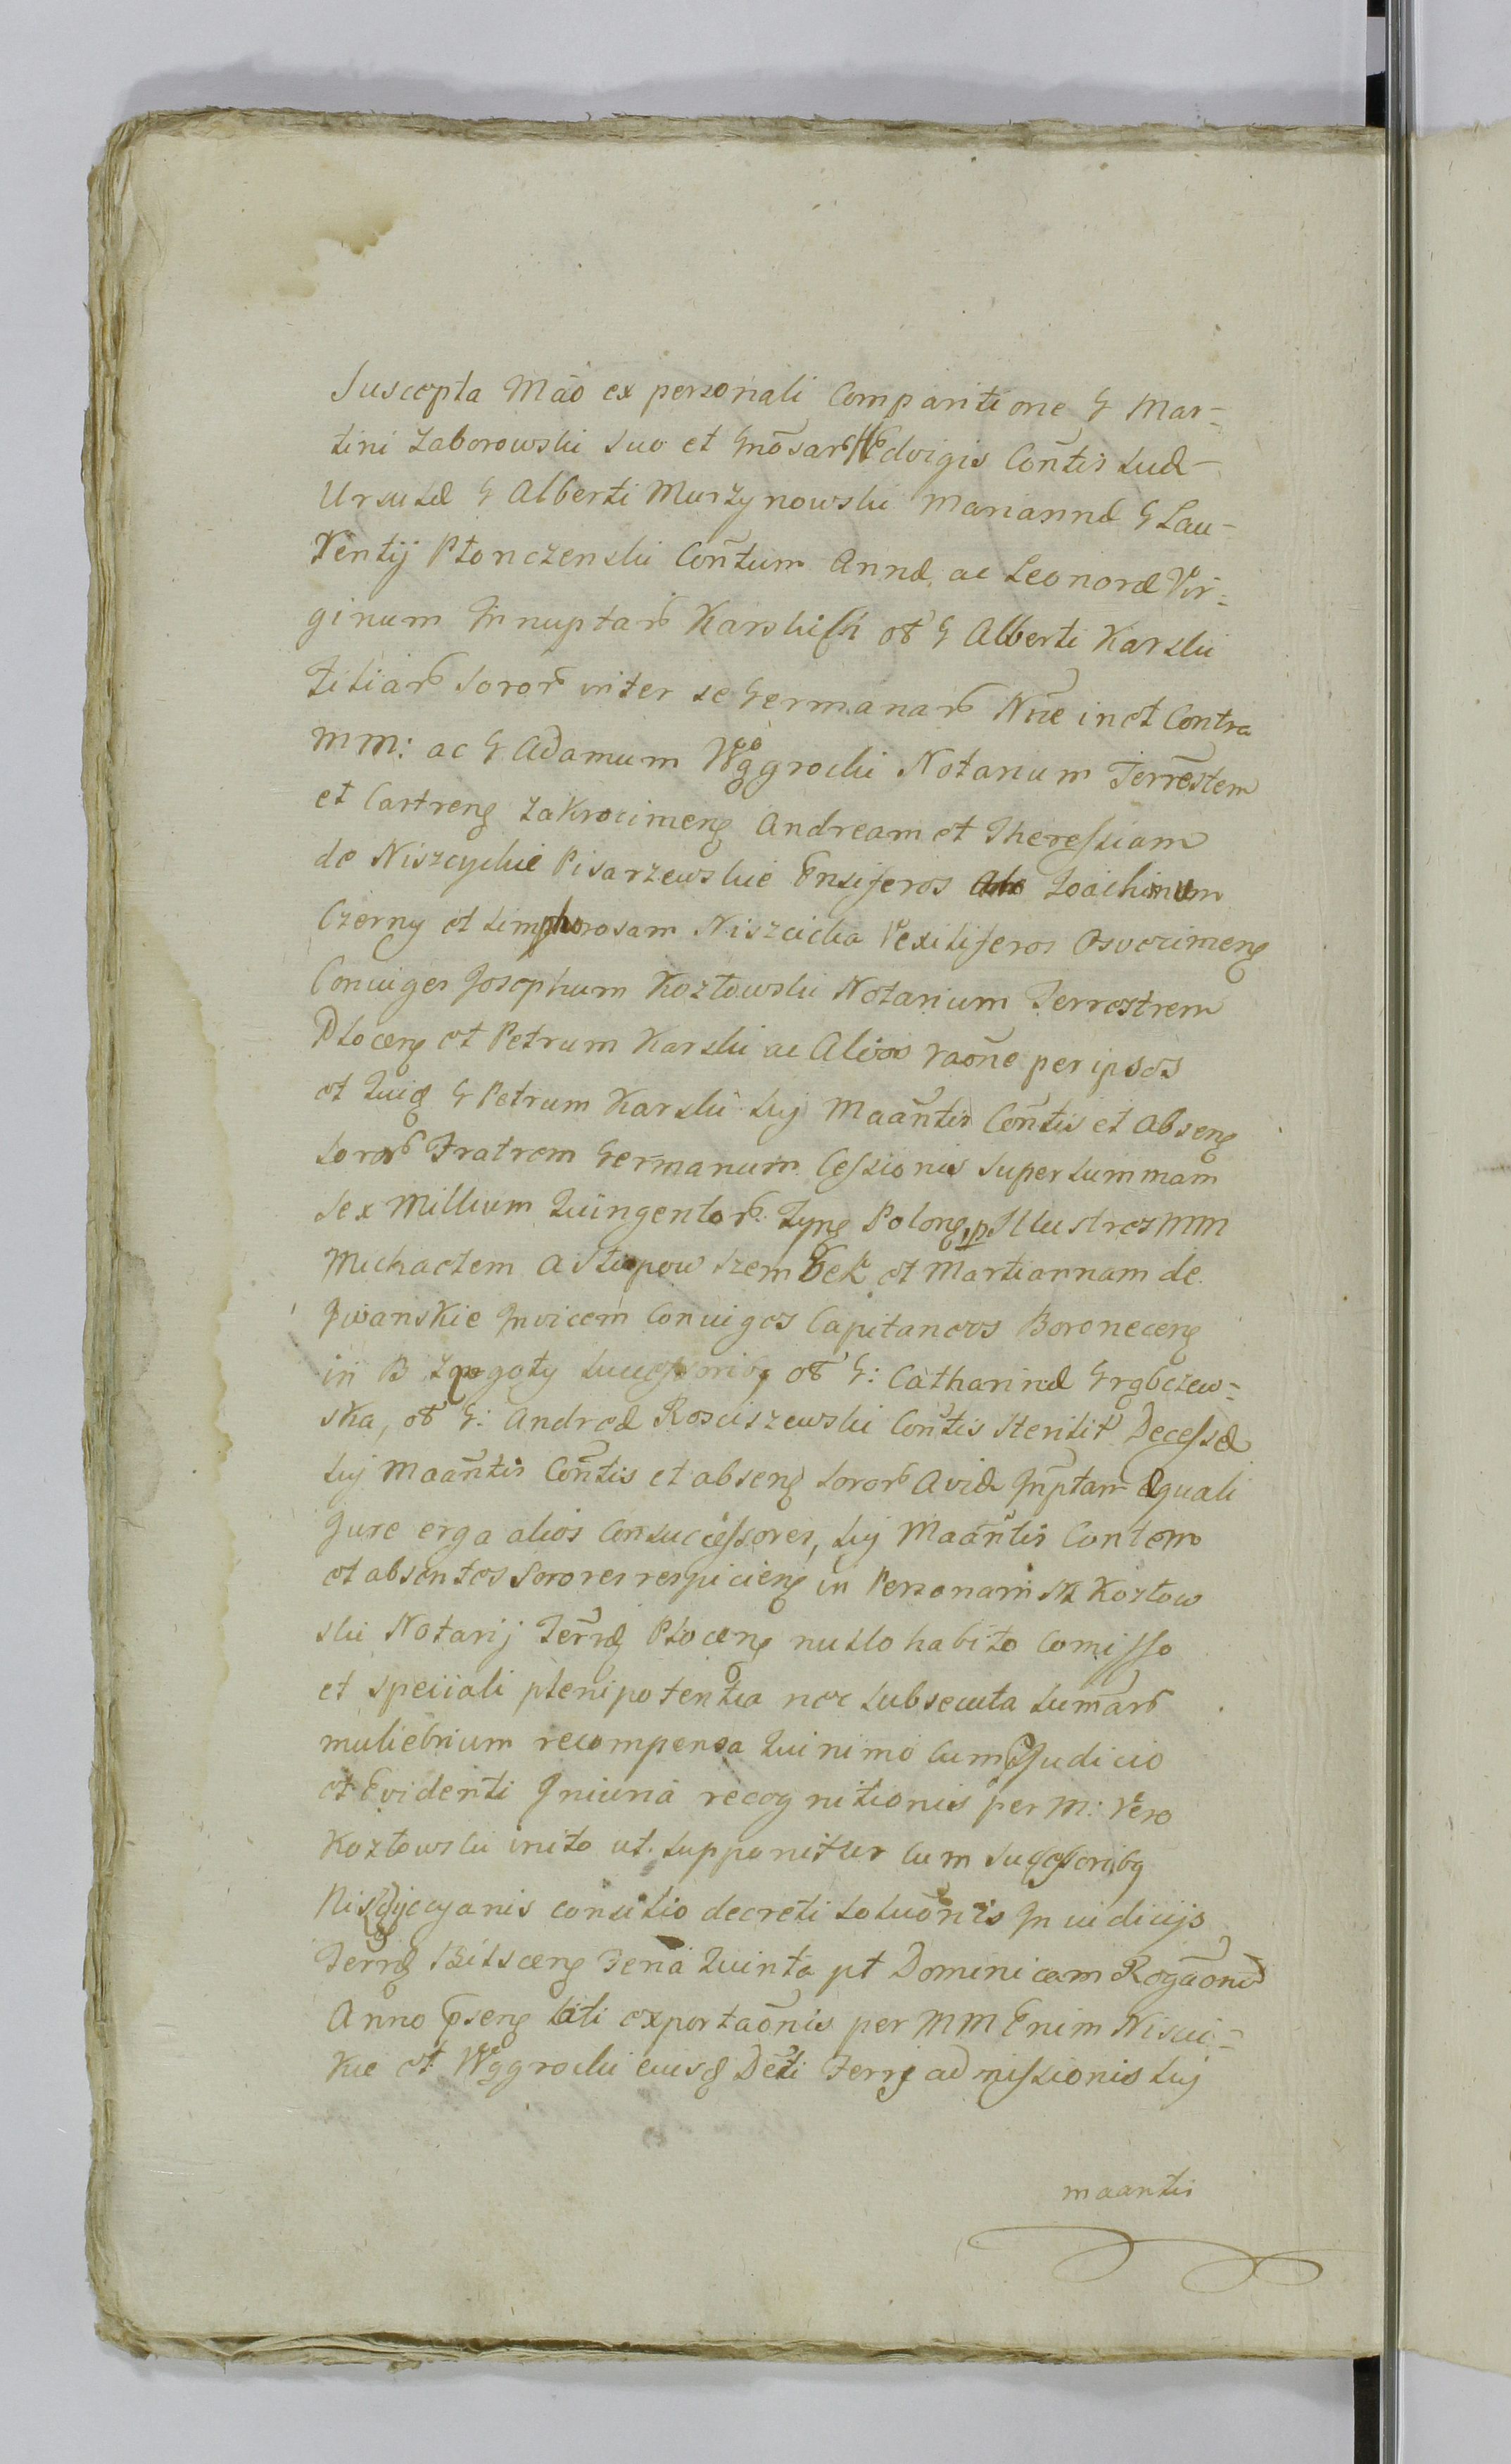 Suscepta Mão ex personali Comparitione G Mar-
tini Zaborowski suo et Gnōsar Hedvigis Con̄tis suæ
Ursulæ G Alberti Murzynowski Mariannæ G Lau-
rentij Płonczenski Con̄tum Annæ ac Leonoræ Vir-
ginum Innuptar Karskich ol G Alberti Karski
Filiar Soror inter se Germanar Nñe in et Contra
MM: ac G Adamum Węgrocki Notarium Terrēstem
et Castreng Zakrocimeng Andream et Theressiam
de Niszczyckie Pisarzewskie Ensiferos Joachimum
Czerny et Simphorosam Niszcicka Vexiliferos Osvecimeng
Coniuges Josephum Kozłowski Notarium Terrestrem
Płoceng et Petrum Karski ac Alios raōne per ipsos
et Quiq G Petrum Karski sui Maān̄tis Con̄tis et Abseng
Soror Fratrem Germanum Cessionis super summam
sex Millium Quingentor Flyng Poloneg p Illustres MM
Michaelem a Słupow Szembek et Martiannam de
Iwanskie Invicem Coniuges Capitaneos Boroneceng
in B Zegoty Successoribg ol G: Catharinæ Grąbczew-
ska, ol G: Andreæ Rosciszewski Con̄tis Sterilit Decessæ
sui Maān̄tis Con̄tis et abseng soror Avidæ Inptam æquali
Jure erga alios Consuccessores, sui Maān̄tis Contem
et absentes Sorores respicieng in Personam M Kozłow
ski Notarij Terrīg Płoceng nullo habito Comisso
et speciali plenipotentia nec subsecuta sumar
muliebrium recompensa Quinimo cum Pjudicio
et Evidenti Iniuria recognitionis per M: Vero
Kozłowski inito ut supponitur cum successoribg
Niszczycyanis consilio decreti solvōnis In iudicijs
Terrīg Bilsceng Feria Quinta pt Dominicam Rogāonū
Anno Pseng lati exportaōnis per MM Enim Niscic-
kie et Węgrocki eiusq Decti Terrīg admissionis sui
maantis